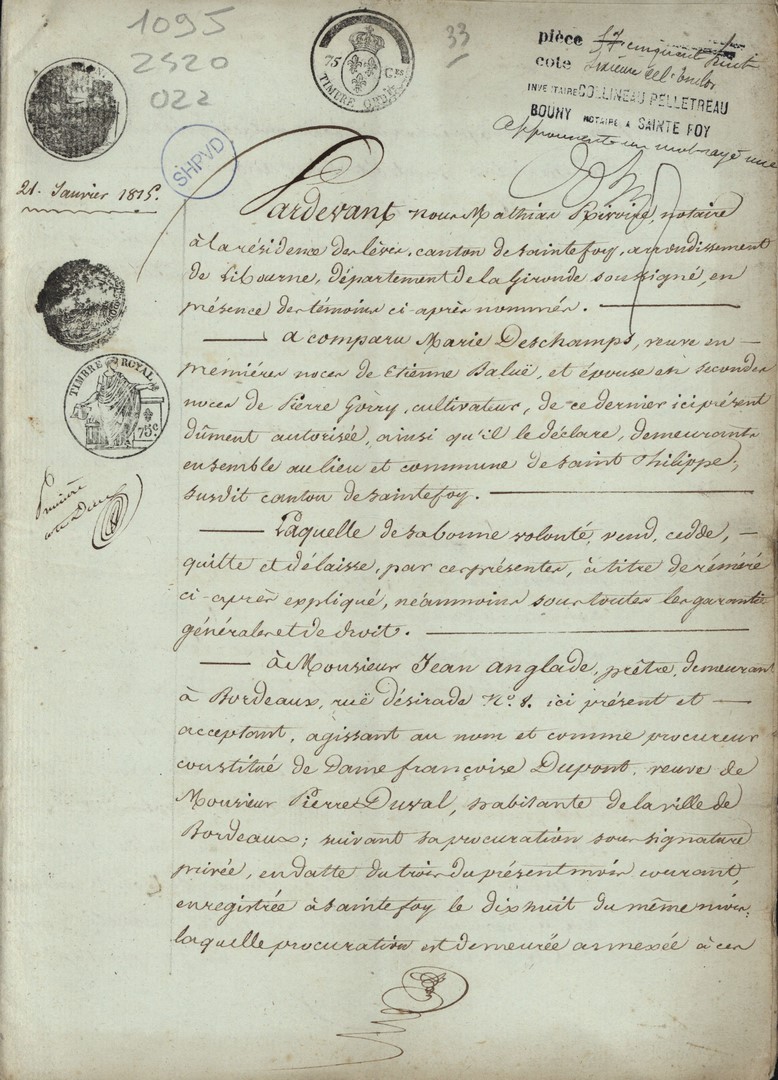 1095
2520
022
33
75 Ces
TIMBRE
pièce cinquante huit
cote
INVENTAIRE COLLINEAU PELLETREAU
BOUNY NOTAIRE A SAINTE FOY
approuvant un mot rayé
SHPVD
21. Janvier 1815.
TIMBRE ROYAL
75c
Première
Pardevant nous Mathias notaire
à la résidence des lèves, canton de Saintefoy, arrondissement
de Libourne, département de la Gironde soussigné, en
présence des témoins ci-après nommés.
a comparu Marie Deschamps, veuve en
premières noces de Etienne Baluë, et épouse en secondes
noces de Pierre Gorry, cultivateur, de ce dernier ici présent
dûment autorisée, ainsi qu'il le déclare, demeurants
ensemble au lieu et commune de Saint Philippe,
susdit canton de Saintefoy.
Laquelle de sa bonne volonté, vend, cedde,
quitte et délaisse, par ces présentes, à titre de réméré
ci-après expliqué, néammoins sous toutes les garanties
générales et de droit.
à Monsieur Jean Anglade, prêtre, demeurant
à Bordeaux, ruë désirade No. 8. ici présent et
acceptant, agissant au nom et comme procureur
constitué de Dame françoise Dupont, veuve de
Monsieur Pierre Duval, habitante de la ville de
Bordeaux; suivant sa procuration sous signature
privée, en datte du trois du présent mois courant,
enregistrée à Saintefoy le dix huit du même mois;
laquelle procuration est demeurée annexée à ces